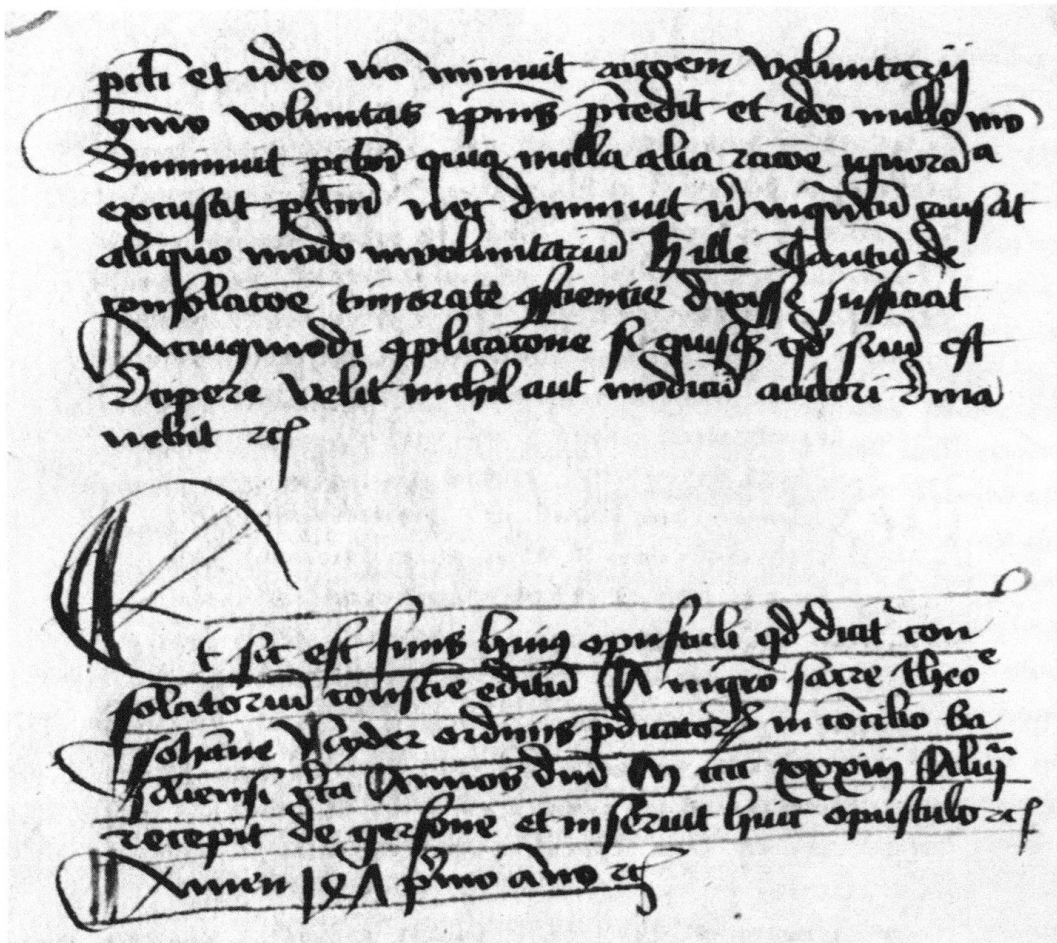 pctī et ideo nō minuit racōem voluntarij
ymo voluntas ipius p̄cedit et ideo nullo mō
Diminuit pctm̄ quia nulla alia racōe ignorāa
excusat pctm̄ nec diminuit nisi inq̄ntū causat
aliquo modo involuntariū h ille Tantū de
consolacōe timorate ꝯsciencie dixisse sufficiat
ꝯplicacōne si quisqꝫ qd' suū est
Demere velit nichil aut modicū auctori Rema
nebit rcͭ
Et sic est finis huiꝰ opusculi qd' dicit con
solatoriū conscīe editū A mgrō sacre theoᵉ
Johāne Nyder ordinis p̄dicatorꝝ in cōcilio ba
siliensi cͬca Annos dnī M cccͨ xxxiij Aliqͣ
recepit de gersone et inseruit huic opusculo rcͭ
Amen 1 8 Λ p̄mo āno rcͭ